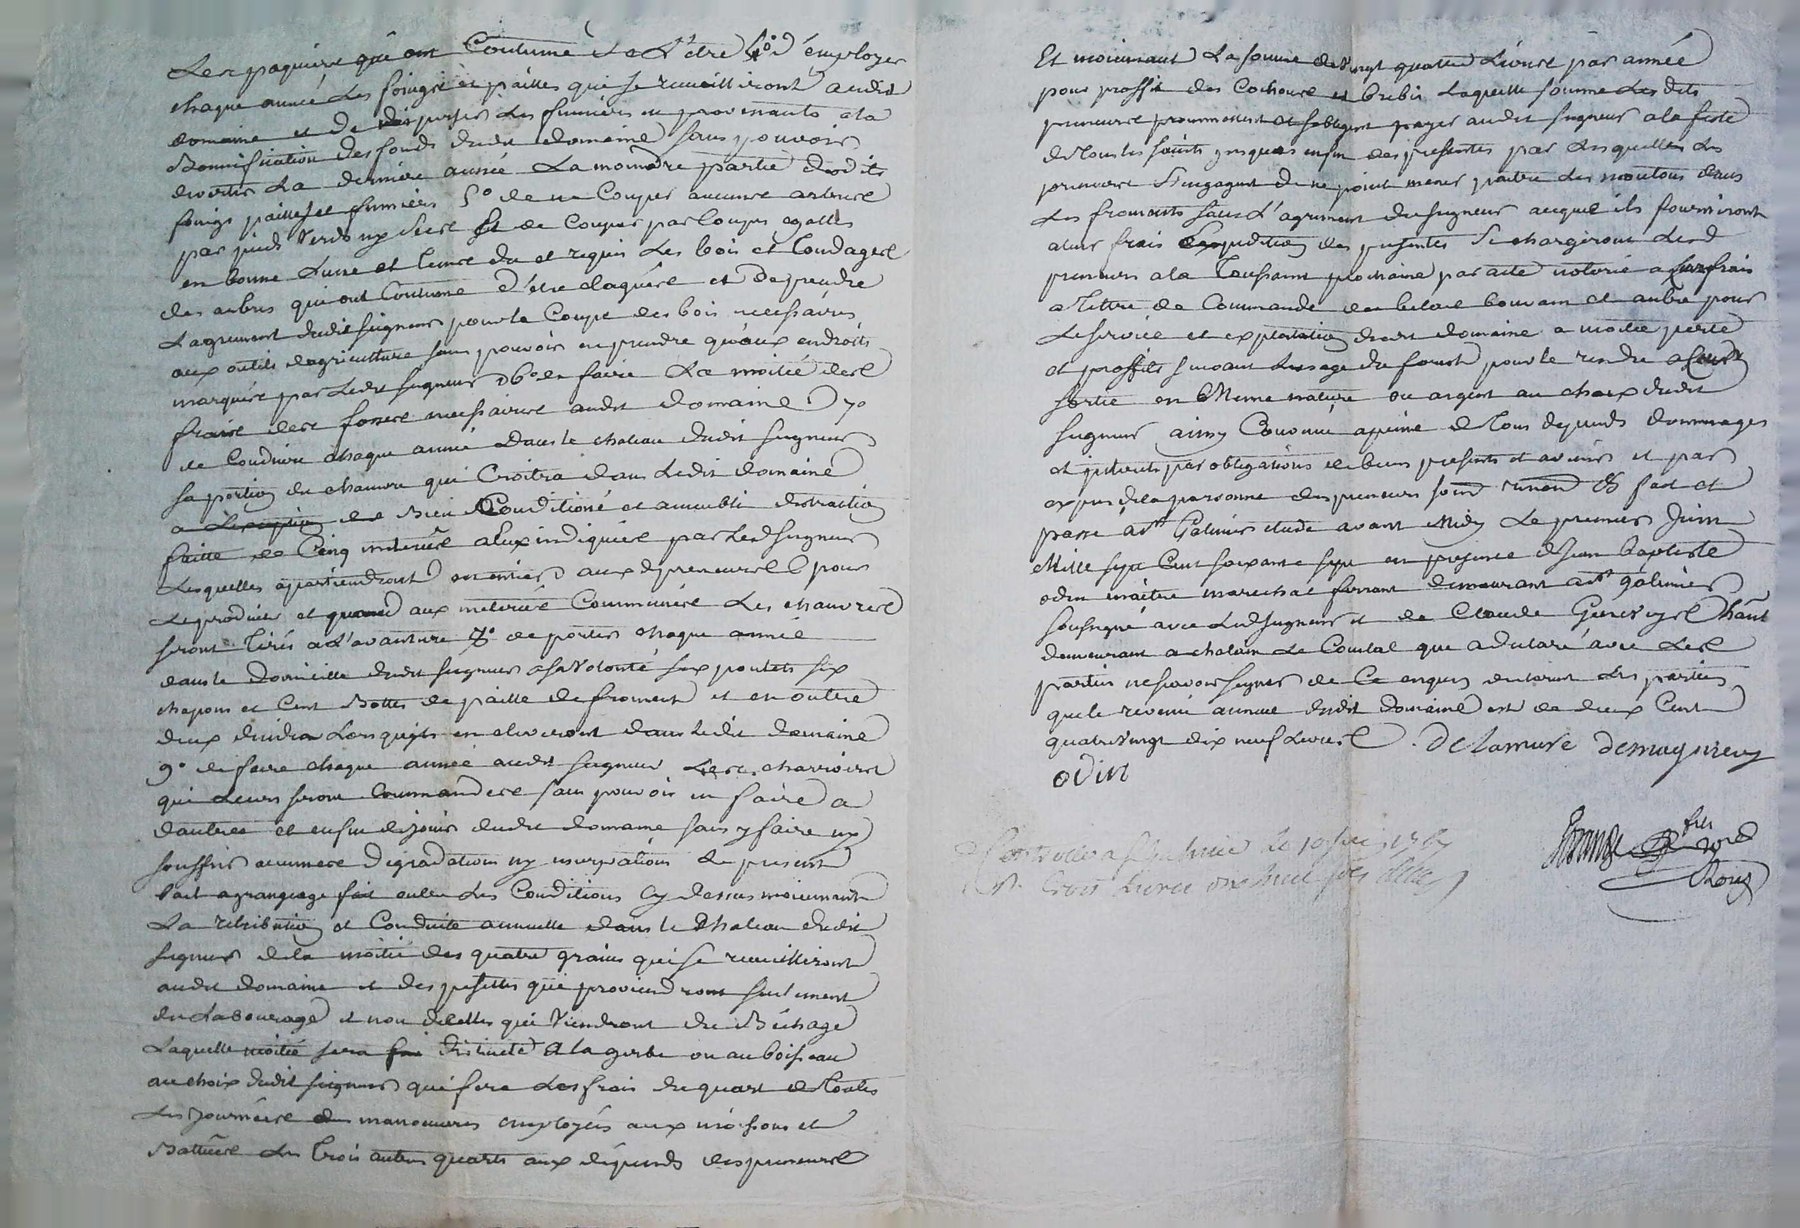 Les paquiers qui ont Coutume de L'être 4° d'employer
chaque année Les foings et pailles qui se recueilliront audit
domaine et de disperser Les fumiers en provenants a la
Bonnification des fonds dudit domaine sans pouvoir
divertir La derniere année La moindre partie desdits
foings pailles et fumiers 5° de ne Couper aucuns arbres
par pieds verds ny secs et de Couper par Coupes egalles
en bonne Lune et tems du et requis Les bois et
des arbres qui ont Coutume d'etre elagués et de prendre
L'agrement dudit seigneur pour la Coupe des bois necessaires
aux outils d'agriculture sans pouvoir en prendre qu'aux endroits
marqués par Ledit seigneur 6° de faire La moitié des
frais des fossés necessaires audit domaine 7°
de Conduire chaque année dans le chateau dudit seigneur
sa portion du chanvre qui Croitra dans Ledit domaine
bien Conditioné et annubli distraction
faitte de Cinq a Eux indiquées par Led seigneur
Lesquelles apartiendront en entier aux preneurs pour
Le produire et quand aux Communes Les chanvres
seront tirés a L'avanture 8° de porter chaque année
dans le domicille dudit seigneur a sa volonté six poulets six
chapons et Cent Bottes de paille de froment et en outre
deux dindes Lorsqu'ils en eleveront dans ledit domaine
9° de faire chaque année audit seigneur Les charrois
qui Leurs seront Commandés sans pouvoir en faire a
d'autres et enfin de jouir dudit domaine sans y faire ny
souffrir aucunes degradations ny usurpations Le present
bail a grangeage fait outre Les Conditions Cy dessus moienant
La retribution et Conduite annuelle dans le Chateau dudit
seigneur de la moitié des quatre grains qui se recueilliront
audit domaine et des pesettes qui proviendront seulement
du Labourage et non de celles qui viendront du Bêchage
Laquelle moitié sera distincte a la gerbe ou au boisseau
au choix dudit seigneur qui fera Les frais du quart de toutes
Les journées des manoeuvres employés aux moissons et
Battures Les trois autres quarts aux depends des preneurs
Et moienant La somme de vingt quattre Livres par année
pour proffit des Cochons et brebis Laquelle somme Lesdits
preneurs promettent et s'obligent payer audit seigneur a la feste
de tous les saints jusques enfin des presentes par Lesquelles Les
preneurs s'engagent de ne point mener paitre Les moutons dans
Les froments sans L'agrement du seigneur auquel ils fourniront
a leur frais Expedition des presentes Se chargeront Lesd
preneurs a la Toussaint prochaine par acte notorié a Leur frais
a titre de Commande des bestiaux bouvant et autre pour
Le service et exploitation dudit domaine a moitié perte
et proffits suivant L'usage du forest pour le rendre a Leur
sortie en Meme nature ou argent au choix dudit
seigneur ainsy Convenu a peine de tous depends dommages
et interets par obligations de biens presents et avenir et par
expres de la personne des preneurs soumd renond & fait et
passé a St Galmier etude avant Midy Le premier Juin
Mille sept Cent soixante sept en presence de jean baptiste
odin maitre marechal ferrant demeurant a St galmier
soussigné avec Led seigneur et de Claude habt
demeurant a chatain Le Comtal que a declaré avec Les
parties ne scavoir signer de Ce enquis declarent Les parties
que le revenu annuel dudit domaine est de deux Cent
quatre vingt dix neuf Livres. Delamure
odin
Controllé a St Galmier Le 10 juin 1767
R. trois Livres onze sols